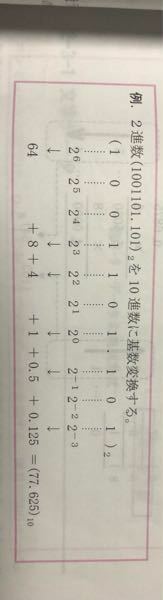 例. 2進数(1001101.101)₂を10進数に基数変換する。
(1 0 0 1 1 0 1 . 1 0 1)₂
2⁶ 2⁵ 2⁴ 2³ 2² 2¹ 2⁰ 2⁻¹ 2⁻² 2⁻³
↓ ↓ ↓ ↓ ↓ ↓
64 + 8 + 4 + 1 + 0.5 + 0.125 = (77.625)₁₀